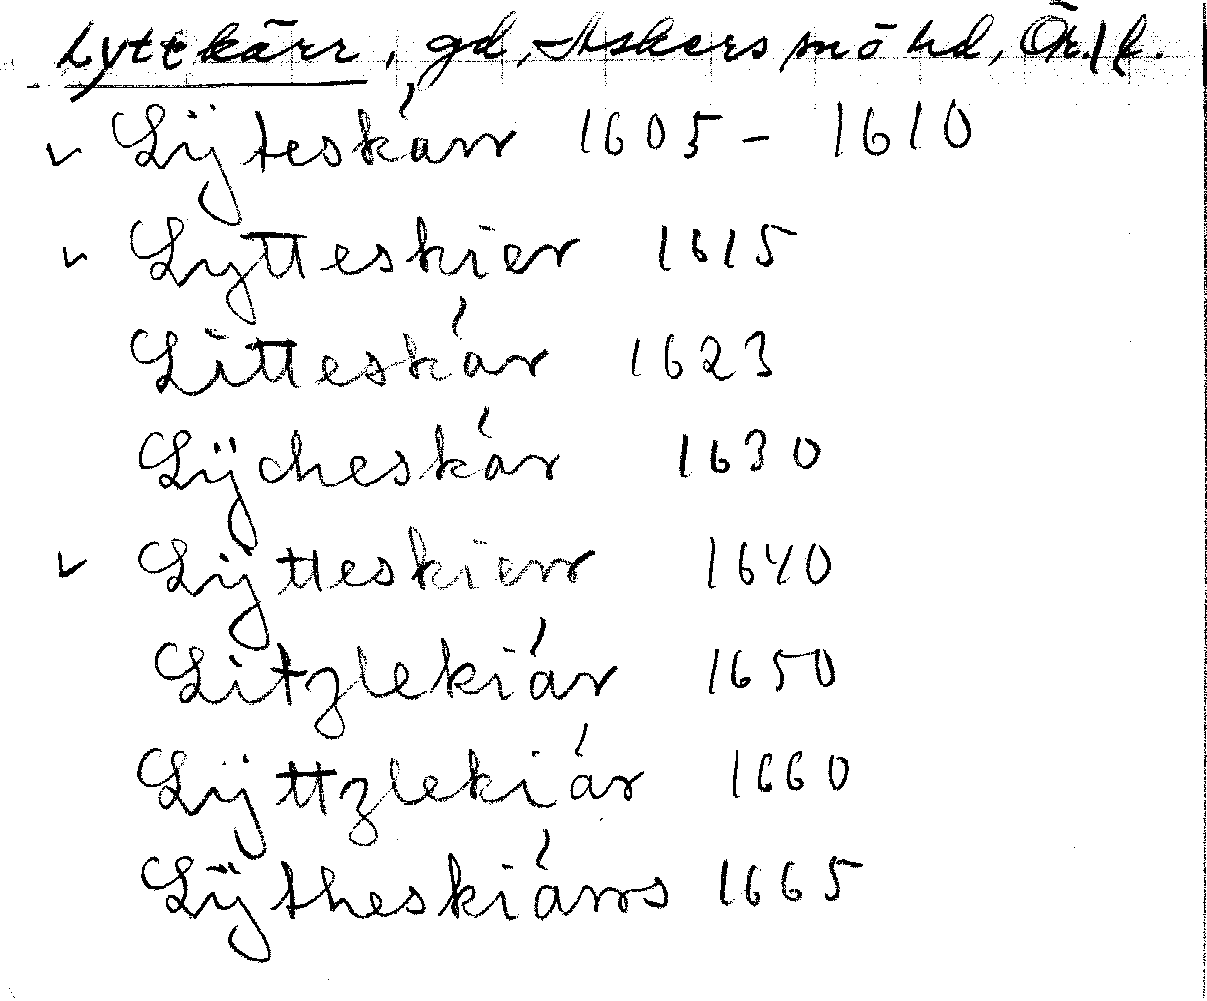 Lyttkärr, gd, Askers sn ö hd, Ör. l f.
✓ Lÿteskárr 1605 - 1610
✓ Lytteskier 1615
Litteskár 1623
Lÿcheskár 1630
✓ Lÿtteskierr 1640
Litzlekiár 1650
Lÿttzlekiár 1660
Lÿtheskiárrs 1665